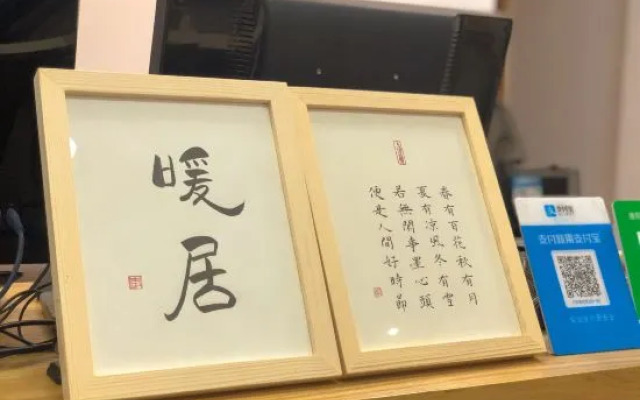 暖居
春有百花秋有月
夏有凉風冬有雪
若無閑事罣心頭
便是人間好時節
支付就用支付宝